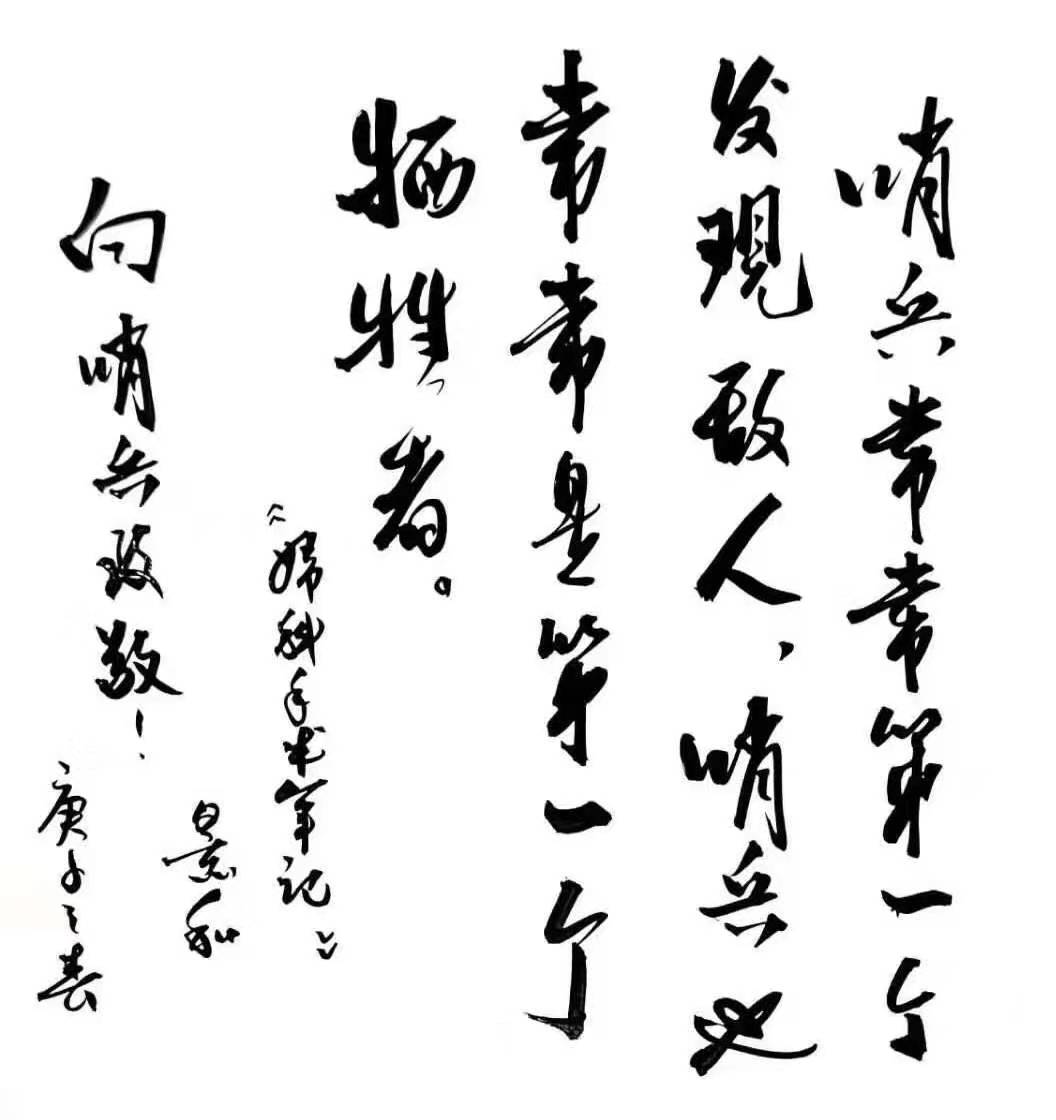 哨兵常常第一个
发现敌人，哨兵也
常常是第一个
牺牲者。
《妇科手术笔记》
向哨兵致敬！
景和
庚子之春